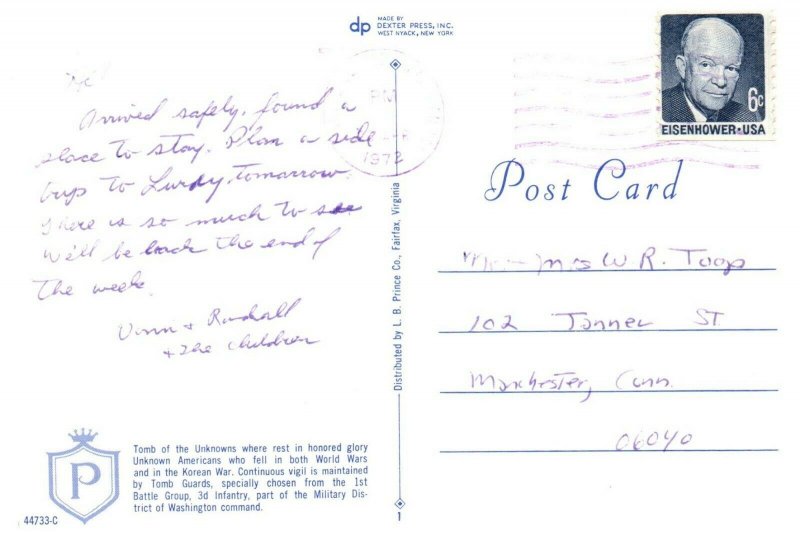 dp MADE BY
DEXTER PRESS, INC.
WEST NYACK, NEW YORK
6c
EISENHOWER·USA
PM
1972
Arrived safely, found a
place to stay. Plan a side
trip to Luray, tomorrow.
There is so much to see
We'll be back the end of
the week.
+ Randall
+ the children
Post Card
Mr. - Mrs W R. Toop
102 Tanner ST
Manchester, Conn.
06040
Distributed by L. B. Prince Co., Fairfax, Virginia
1
P
Tomb of the Unknowns where rest in honored glory
Unknown Americans who fell in both World Wars
and in the Korean War. Continuous vigil is maintained
by Tomb Guards, specially chosen from the 1st
Battle Group, 3d Infantry, part of the Military Dis-
trict of Washington command.
44733-C